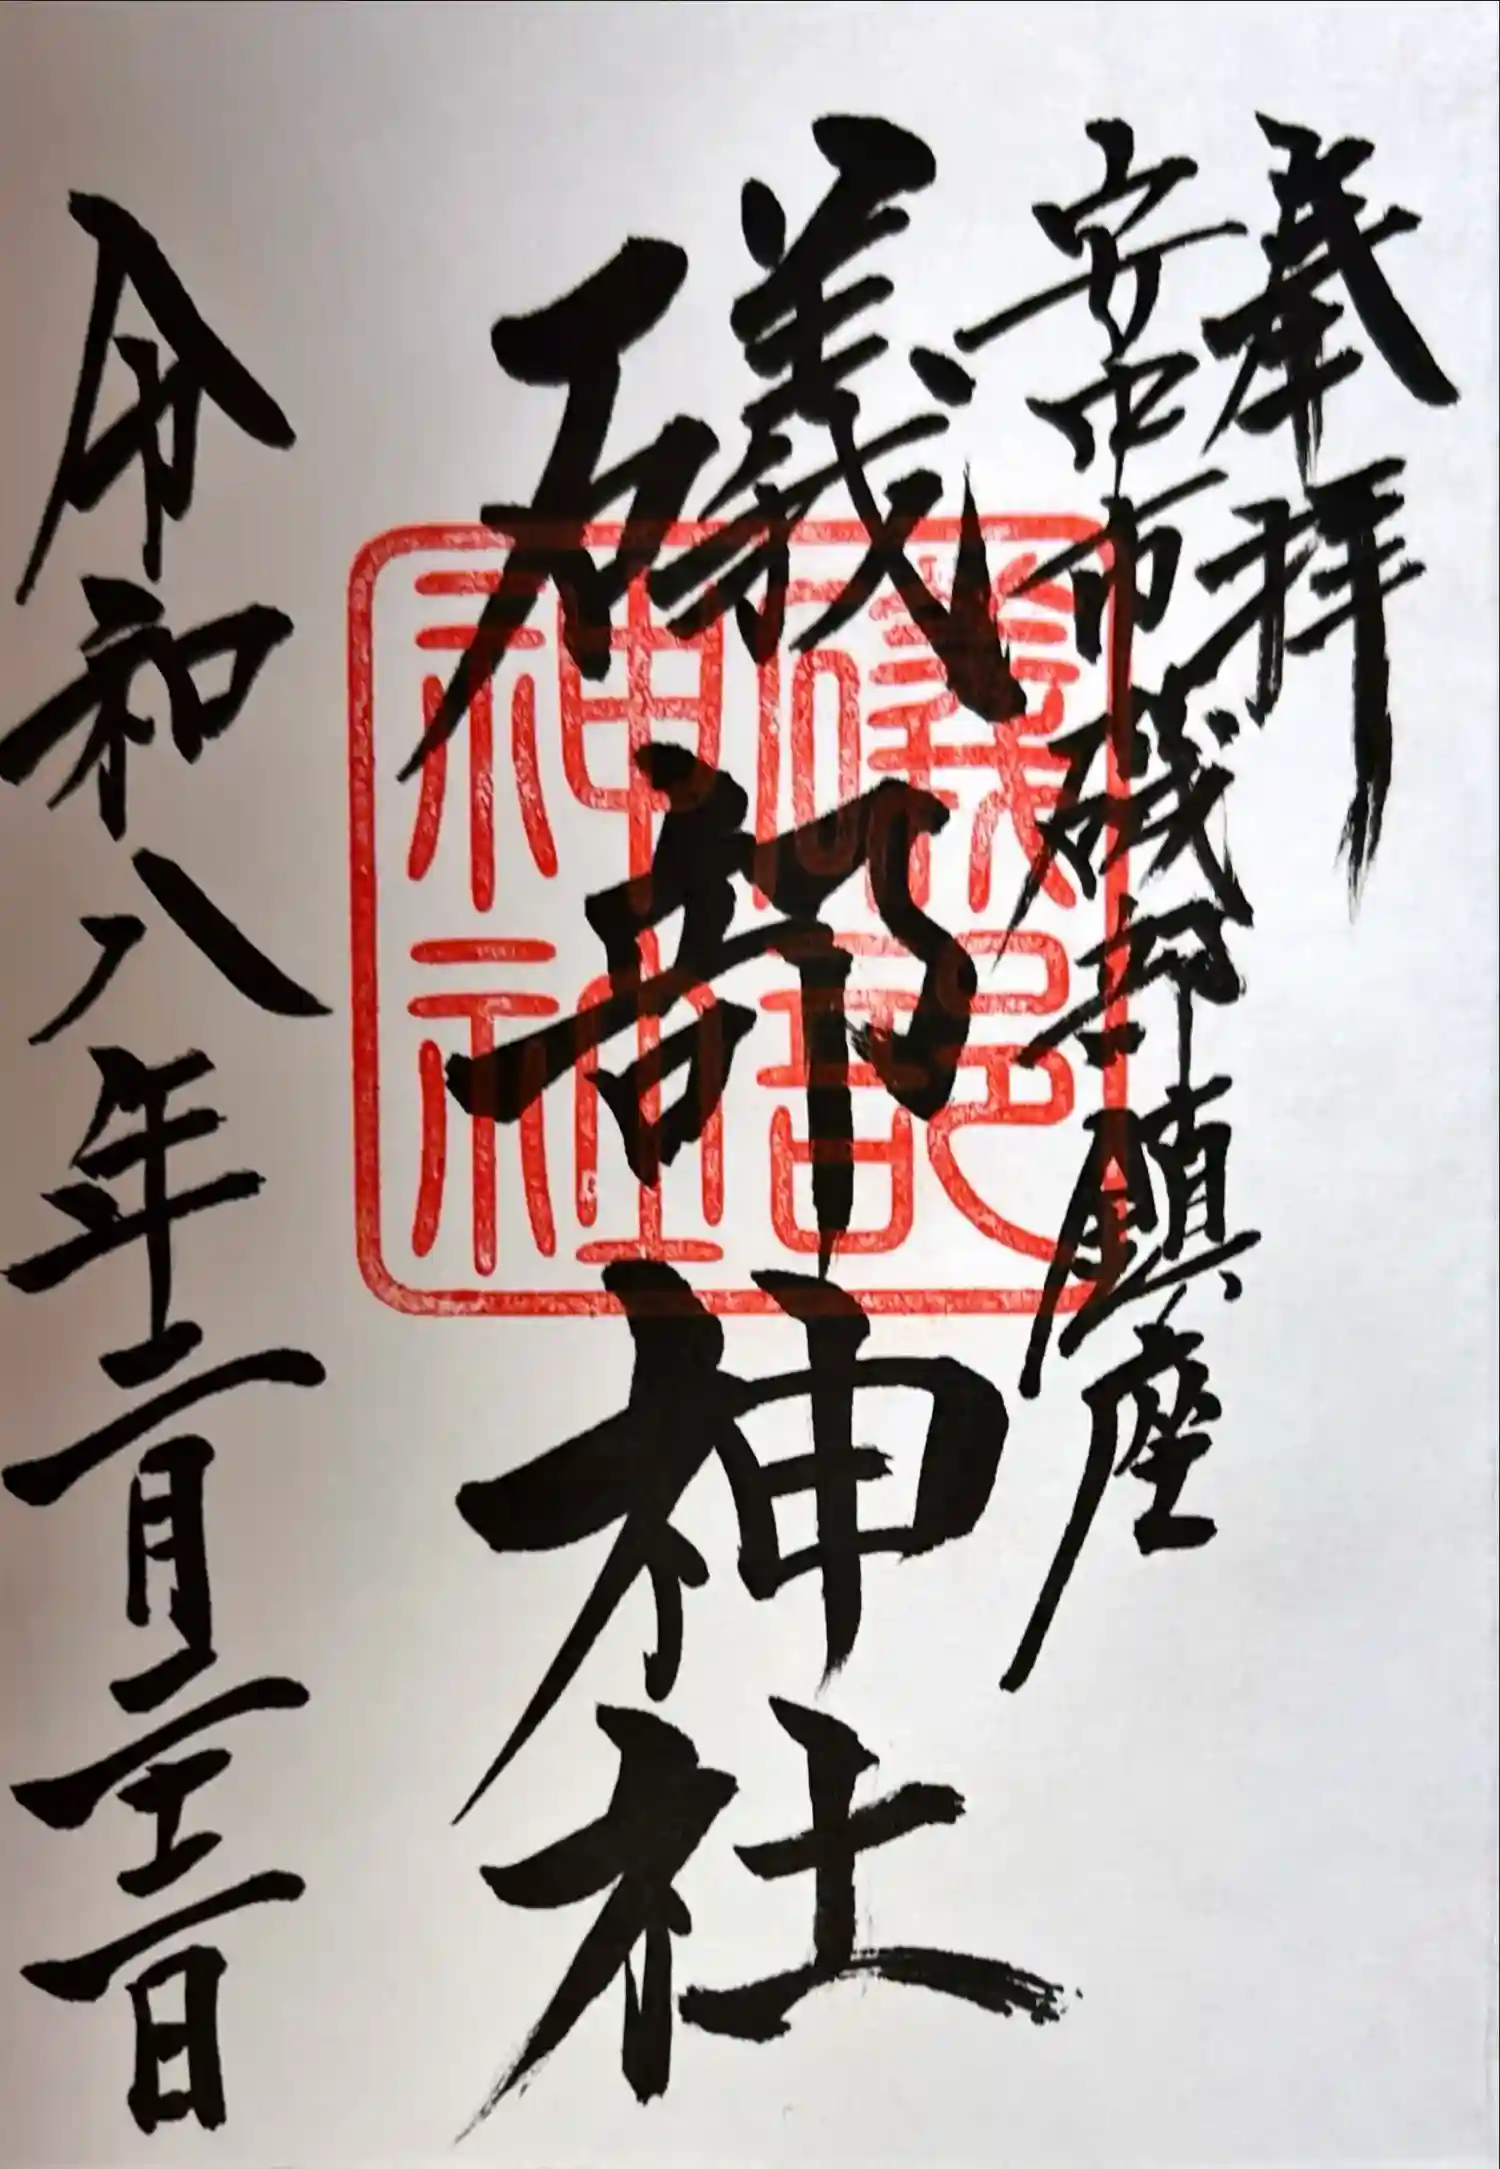 奉拝
安中市磯部鎮座
礒部神社
令和八年二月二十二日
礒部
神社